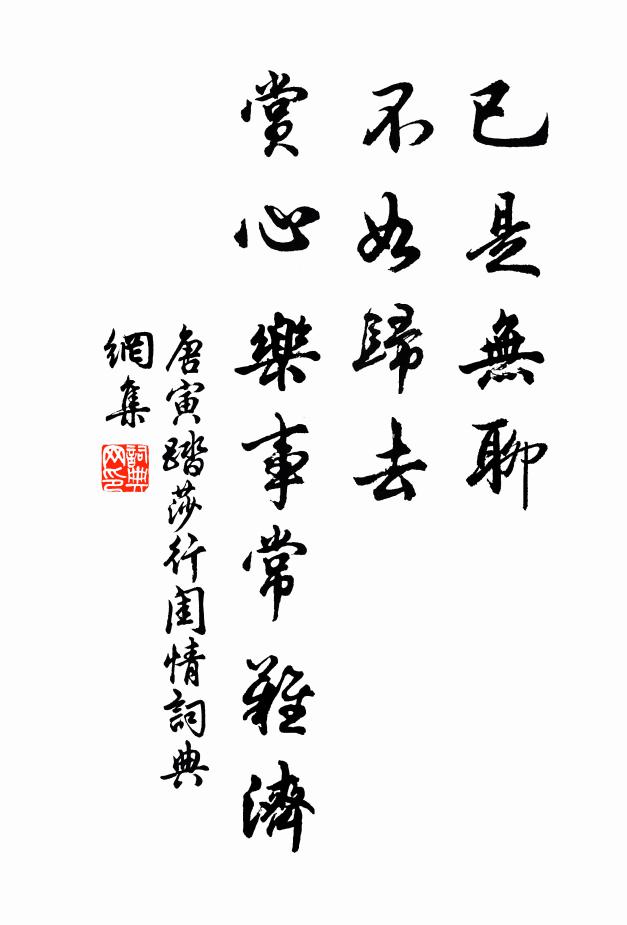 已是無聊
不如歸去
賞心樂事常難濟
唐寅踏莎行閨情詞典
網集
詞典
网印